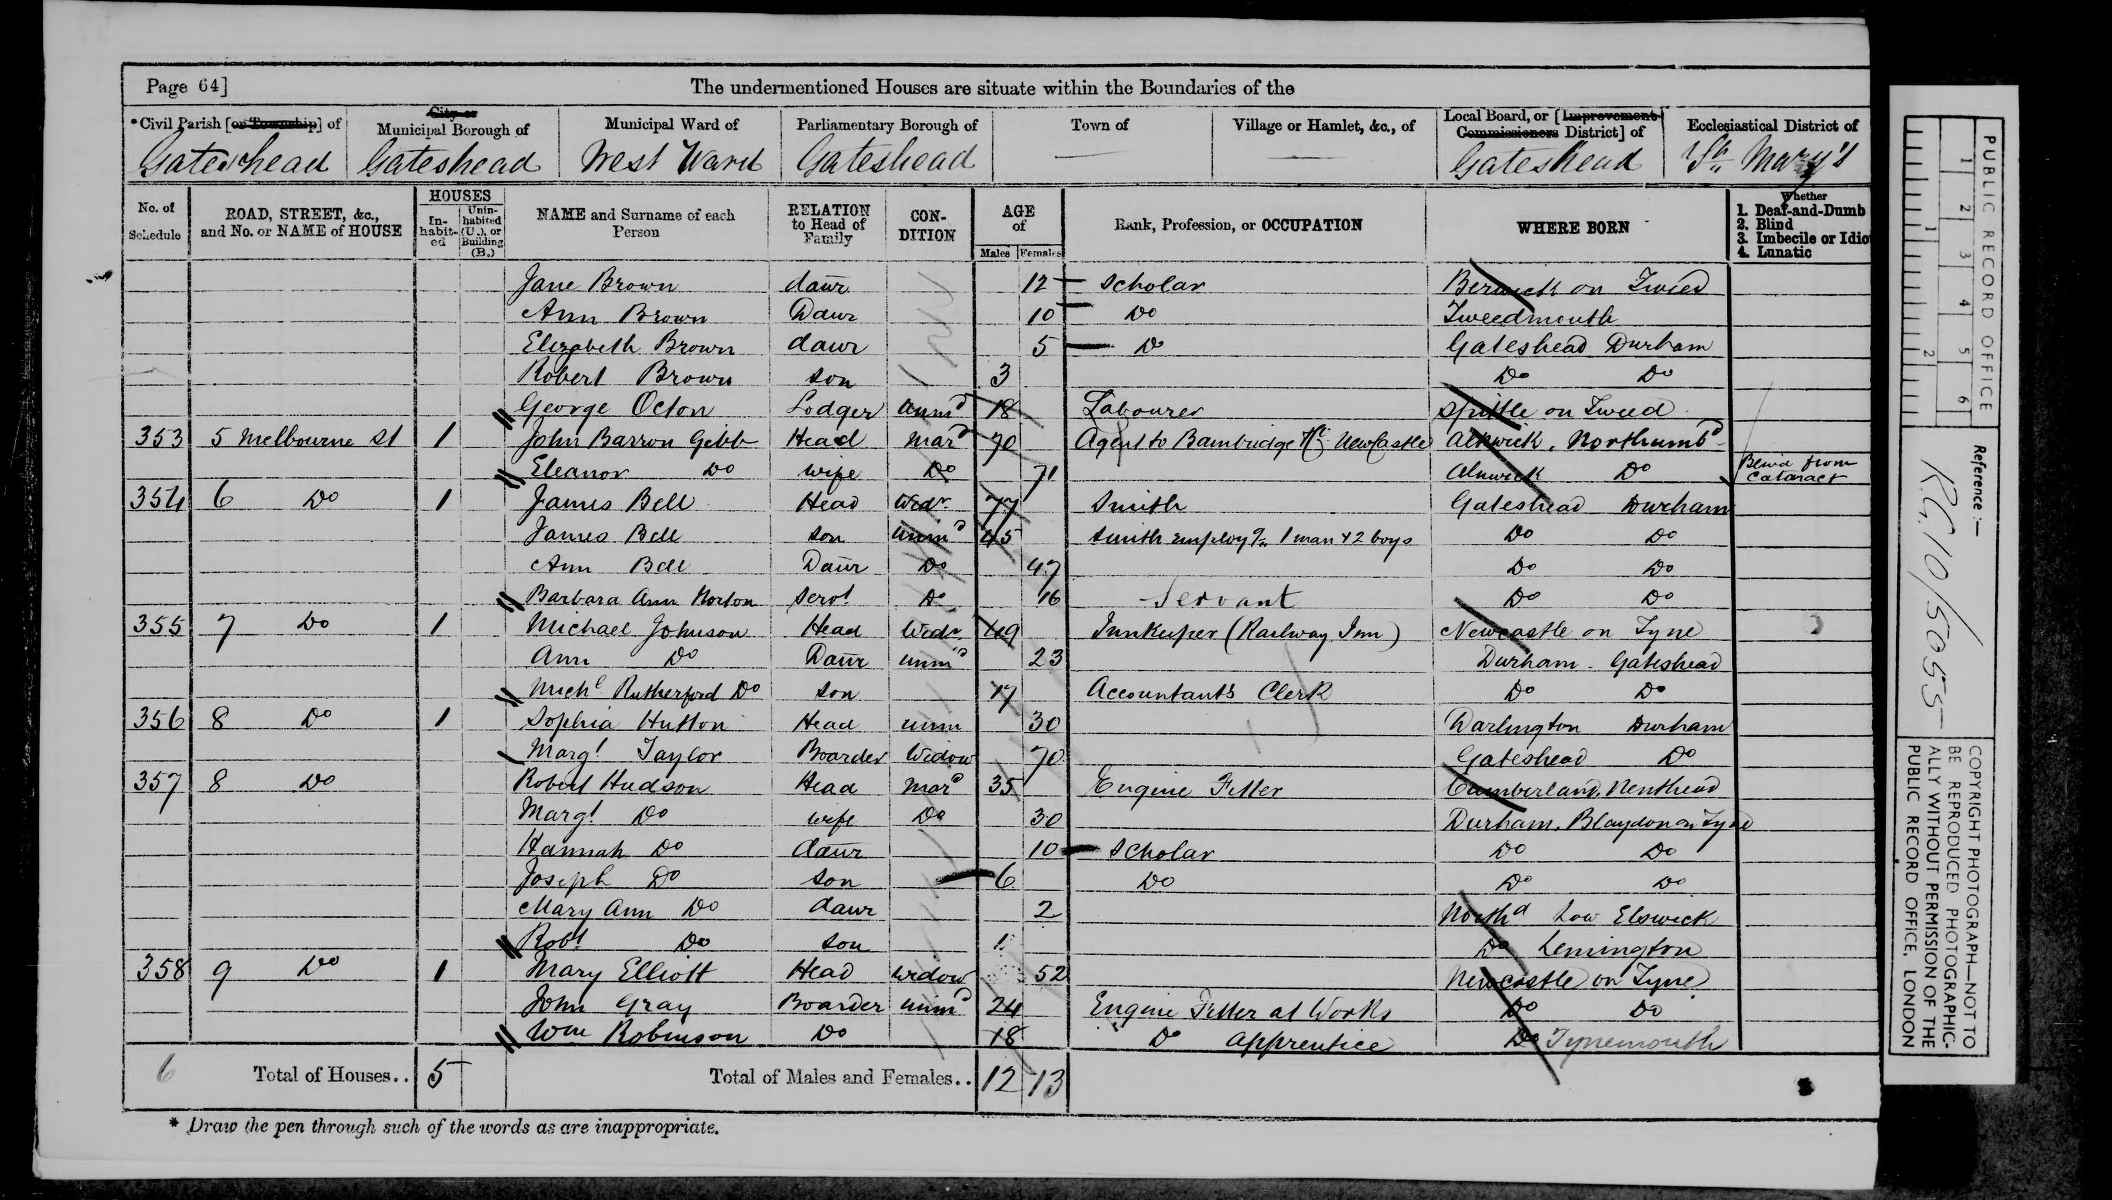 Page 64]
The undermentioned Houses are situate within the Boundaries of the
*Civil Parish [or Township] of
City or
Municipal Borough of
Municipal Ward of
Parliamentary Borough of
Town of
Village or Hamlet, &c., of
Local Board, or [Improvement
Commissioners District] of
Ecclesiastical District of
Gateshead Gateshead West Ward Gateshead Gateshead St. Mary's
No. of
Schedule
ROAD, STREET, &c.,
and No. or NAME of HOUSE
HOUSES
In-
habit-
ed
Unin-
habited
(U.), or
Building
(B.)
NAME and Surname of each
Person
RELATION
to Head of
Family
CON-
DITION
AGE
of
Males Females
Rank, Profession, or OCCUPATION
WHERE BORN
Whether
1. Deaf-and-Dumb
2. Blind
3. Imbecile or Idio
4. Lunatic
Jane Brown daur 12 Scholar Berwick on Tweed
Ann Brown Daur 10 Do Tweedmouth
Elizabeth Brown daur 5 Do Gateshead Durham
Robert Brown son 3 Do Do
George Octon Lodger unmd 18 Labourer Spittle on Tweed
353 5 Melbourne St 1 John Barron Gibb Head mard 70 Agent to Bambridge &c. NewCastle Alnwick, Northumbd
Eleanor Do wife Do 71 Alnwick Do Blind from Cataract
354 6 Do 1 James Bell Head Widr 77 Smith Gateshead Durham
James Bell son unmd 45 Smith employg 1 man & 2 boys Do Do
Ann Bell Daur Do 47 Do Do
Barbara Ann Norton Servt Do 16 Servant Do Do
355 7 Do 1 Michael Johnson Head Widr 49 Innkeeper (Railway Inn) Newcastle on Tyne
Ann Do Daur unmd 23 Durham Gateshead
Michl Rutherford Do son 17 Accountants Clerk Do Do
356 8 Do 1 Sophia Hutton Head unm 30 Darlington Durham
Margt Taylor Boarder Widow 70 Gateshead Do
357 8 Do Robert Hudson Head Mard 35 Engine Fitter Cumberland, Nenthead
Margt Do wife Do 30 Durham, Blaydon on Tyne
Hannah Do daur 10 Scholar Do Do
Joseph Do son 6 Do Do Do
Mary Ann Do daur 2 Northd Low Elswick
Robt Do son 1 Do Lemington
358 9 Do 1 Mary Elliott Head widow 52 Newcastle on Tyne
John Gray Boarder unmd 24 Engine Fitter at Works Do Do
Wm Robinson Do 18 Do Apprentice Do Tynemouth
6 Total of Houses.. 5 Total of Males and Females.. 12 13
* Draw the pen through such of the words as are inappropriate.
PUBLIC RECORD OFFICE
1 2 3 4 5 6
1 2
Reference:—
R.G. 10/5055
COPYRIGHT PHOTOGRAPH—NOT TO
BE REPRODUCED PHOTOGRAPHIC-
ALLY WITHOUT PERMISSION OF THE
PUBLIC RECORD OFFICE, LONDON